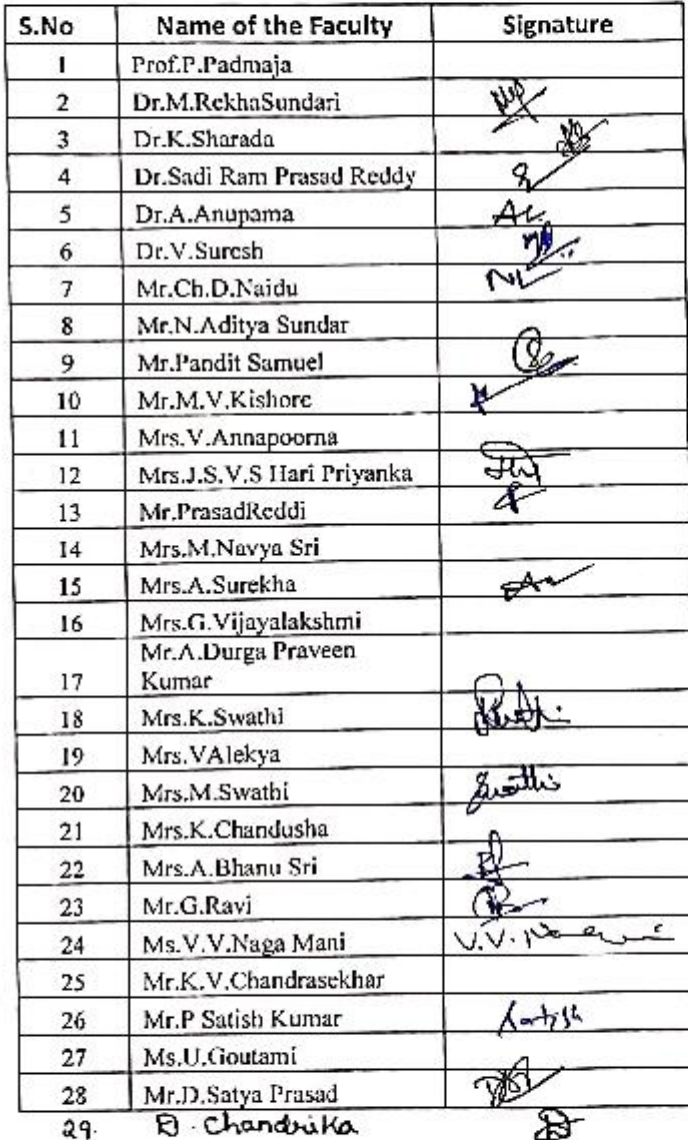 S.No Name of the Faculty Signature
1 Prof.P.Padmaja
2 Dr.M.RekhaSundari
3 Dr.K.Sharada
4 Dr.Sadi Ram Prasad Reddy
5 Dr.A.Anupama
6 Dr.V.Suresh
7 Mr.Ch.D.Naidu
8 Mr.N.Aditya Sundar
9 Mr.Pandit Samuel
10 Mr.M.V.Kishore
11 Mrs.V.Annapoorna
12 Mrs.J.S.V.S Hari Priyanka
13 Mr.PrasadReddi
14 Mrs.M.Navya Sri
15 Mrs.A.Surekha
16 Mrs.G.Vijayalakshmi
Mr.A.Durga Praveen
17 Kumar
18 Mrs.K.Swathi
19 Mrs.VAlekya
20 Mrs.M.Swathi Swathi
21 Mrs.K.Chandusha
22 Mrs.A.Bhanu Sri
23 Mr.G.Ravi
24 Ms.V.V.Naga Mani V.V.
25 Mr.K.V.Chandrasekhar
26 Mr.P Satish Kumar Satish
27 Ms.U.Goutami
28 Mr.D.Satya Prasad
29. D. Chandrika